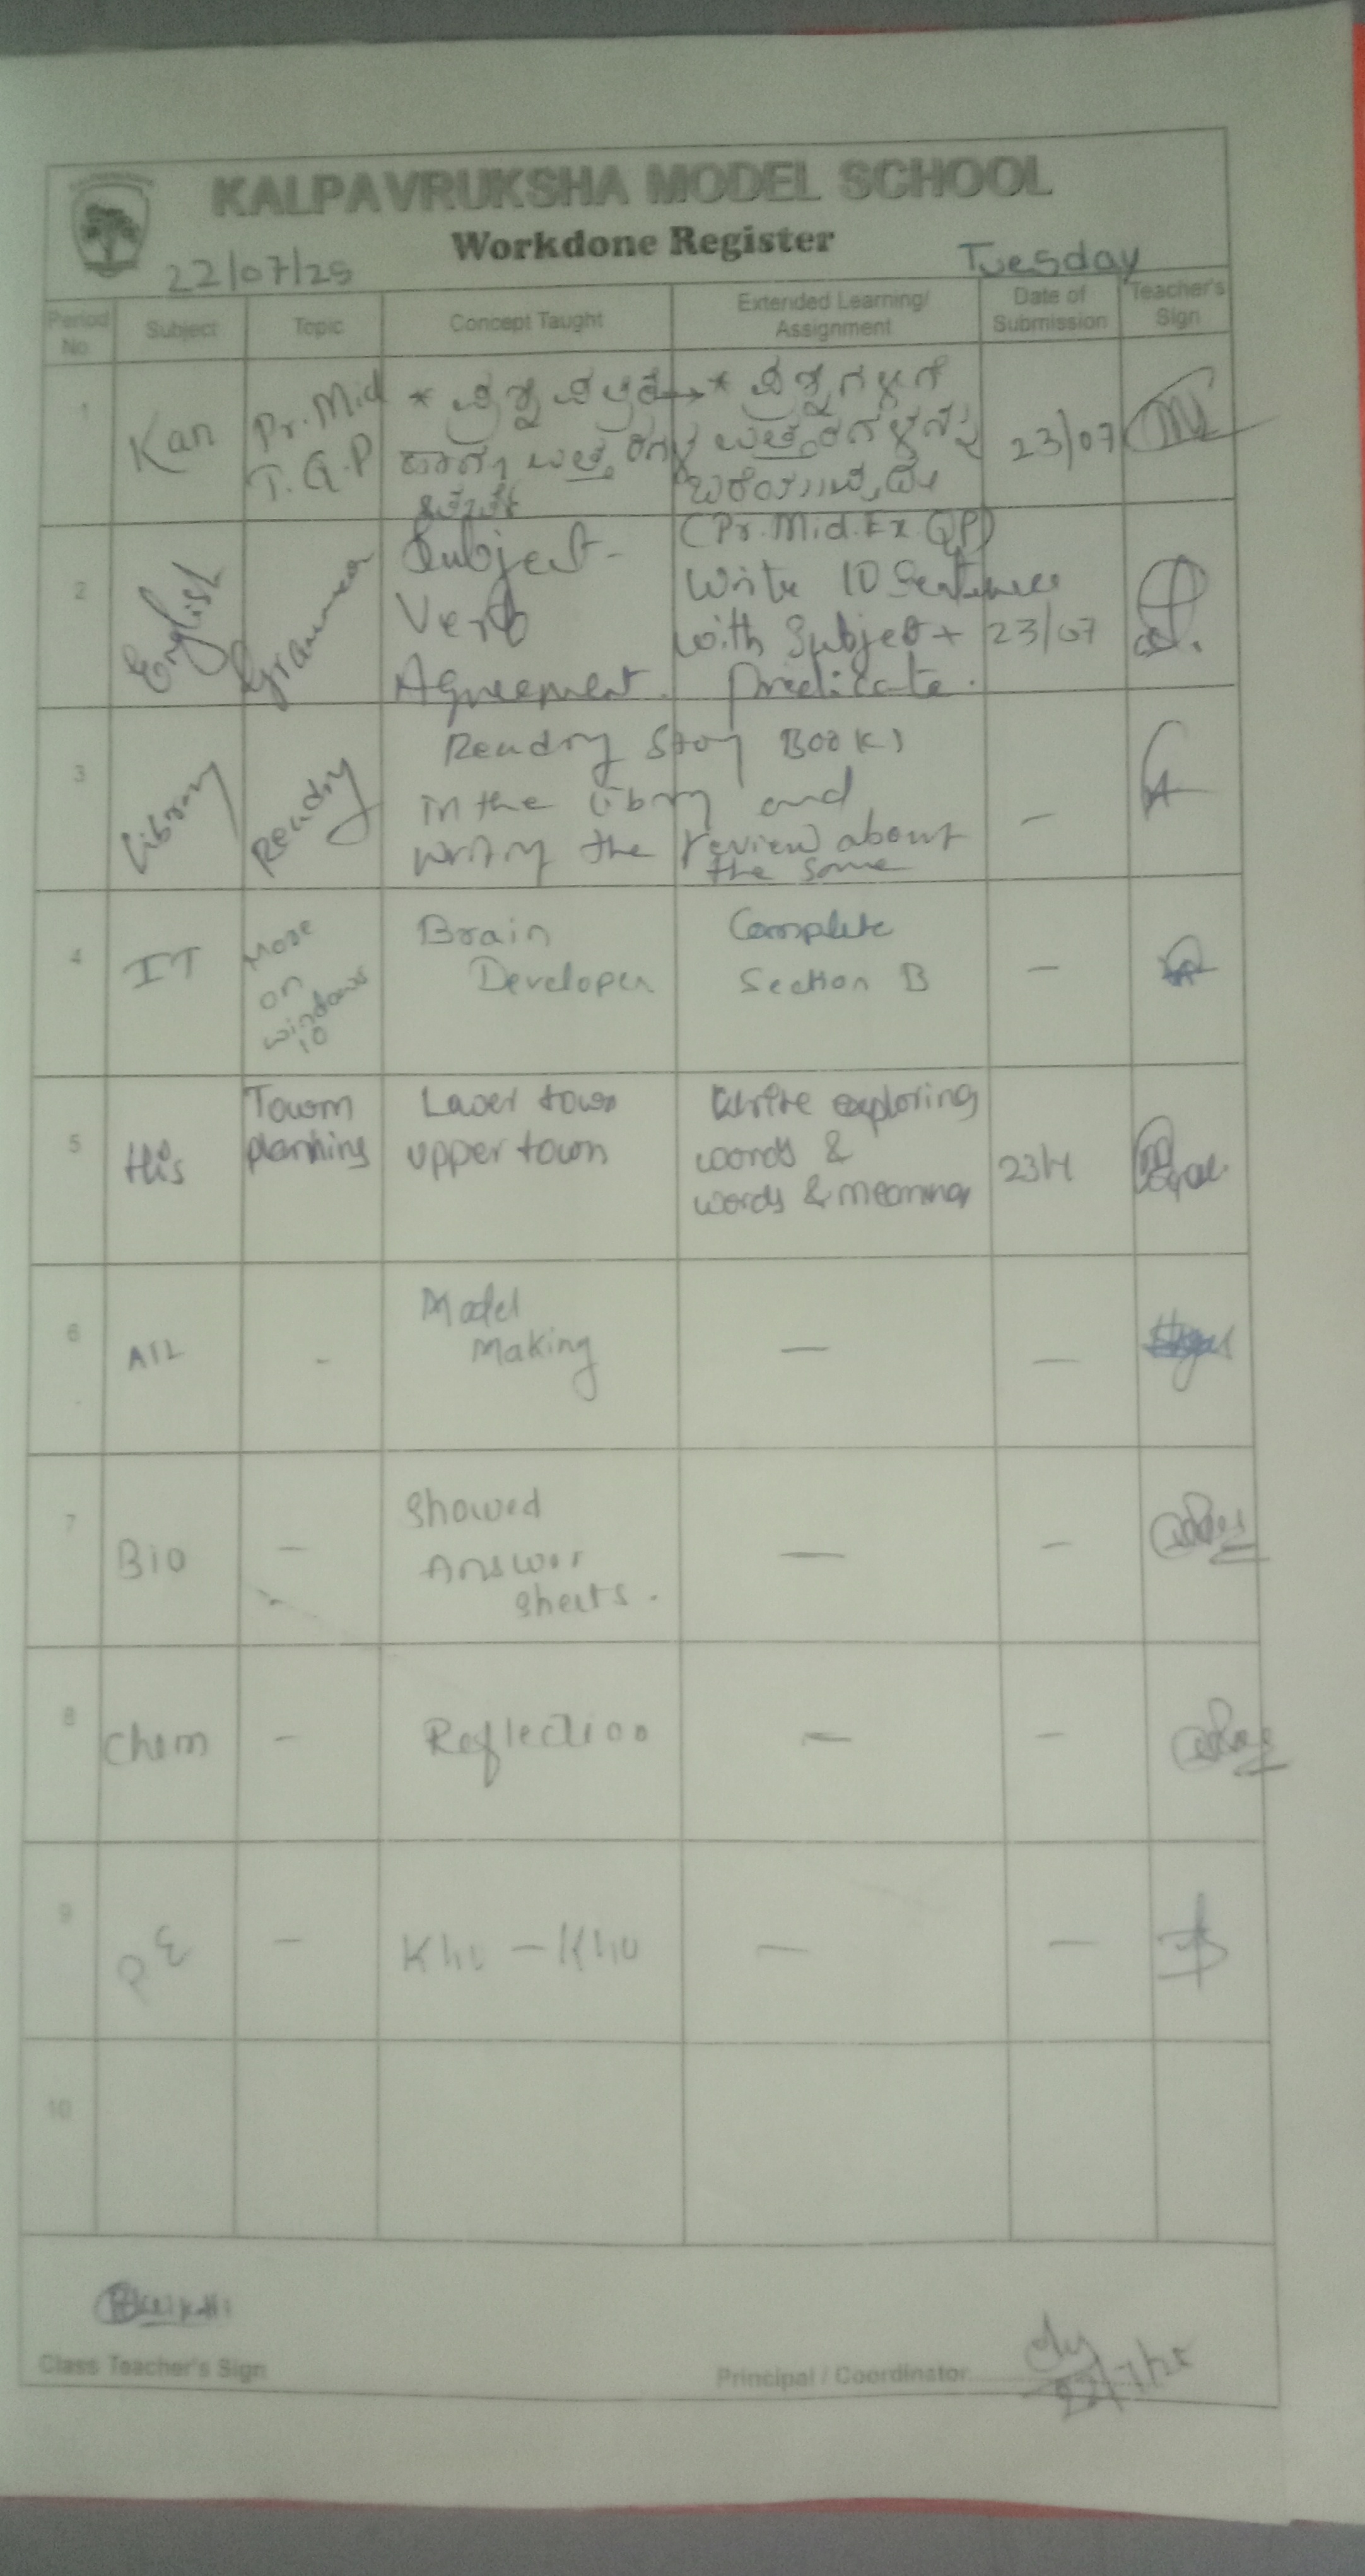 KALPAVRUKSHA MODEL SCHOOL
Workdone Register
22/07/25 Tuesday
Period No. Subject Topic Concept Taught Extended Learning/ Assignment Date of Submission Teacher's Sign
1 Kan Pr. Mid T. Q. P * ಪ್ರಶ್ನೆ * ಪ್ರಶ್ನೆಗಳಿಗೆ 23/07
(Pr. Mid. Ex. QP)
2 English Grammar Subject-
Verb
Agreement.
Write 10 Sentences
with Subject +
predicate.
23/07
3 Library Reading
Reading Story Books
in the library and
writing the review about
the same
—
4 IT More
on
windows
10
Brain
Developer
Complete
Section B
—
5 His Town
planning
Lower town
upper town
Write exploring
words &
words & meaning
6 - Model
Making
— —
7 Bio - Showed
Answer
sheets.
— —
8 Chem - Reflection — -
9 PE - Kho - Kho — —
10
Class Teacher's Sign
Principal / Coordinator